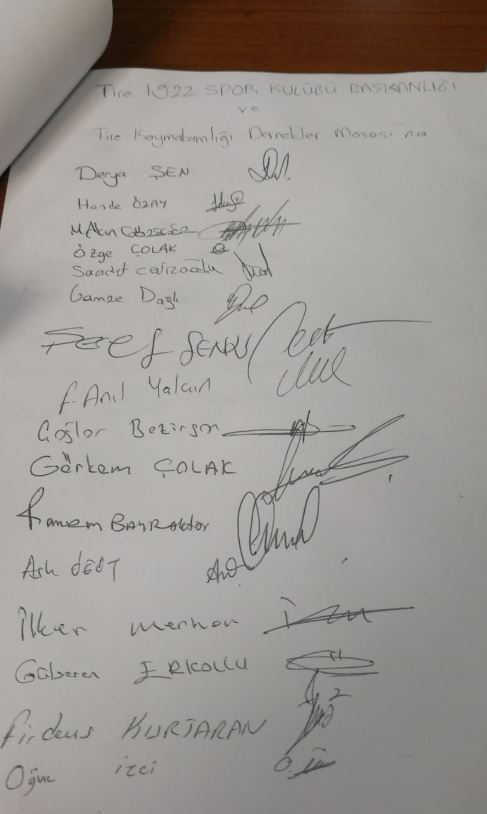 Tire 1922 SPOR KULÜBÜ BAŞKANLIĞI
ve
Tire Kaymakamlığı Dernekler Masası na
Derya ŞEN
Hande ÖZAY
Özge ÇOLAK
Saadet
Gamze Dağlı
Şeref ŞENDU
F. Anıl Yalçın
Çağlar Bezirgan
Görkem ÇOLAK
BAYRAKtar
Aslı
İlker Merhan
Gülseren ERKOLLU
Firdevs KURTARAN
Oğuz izci